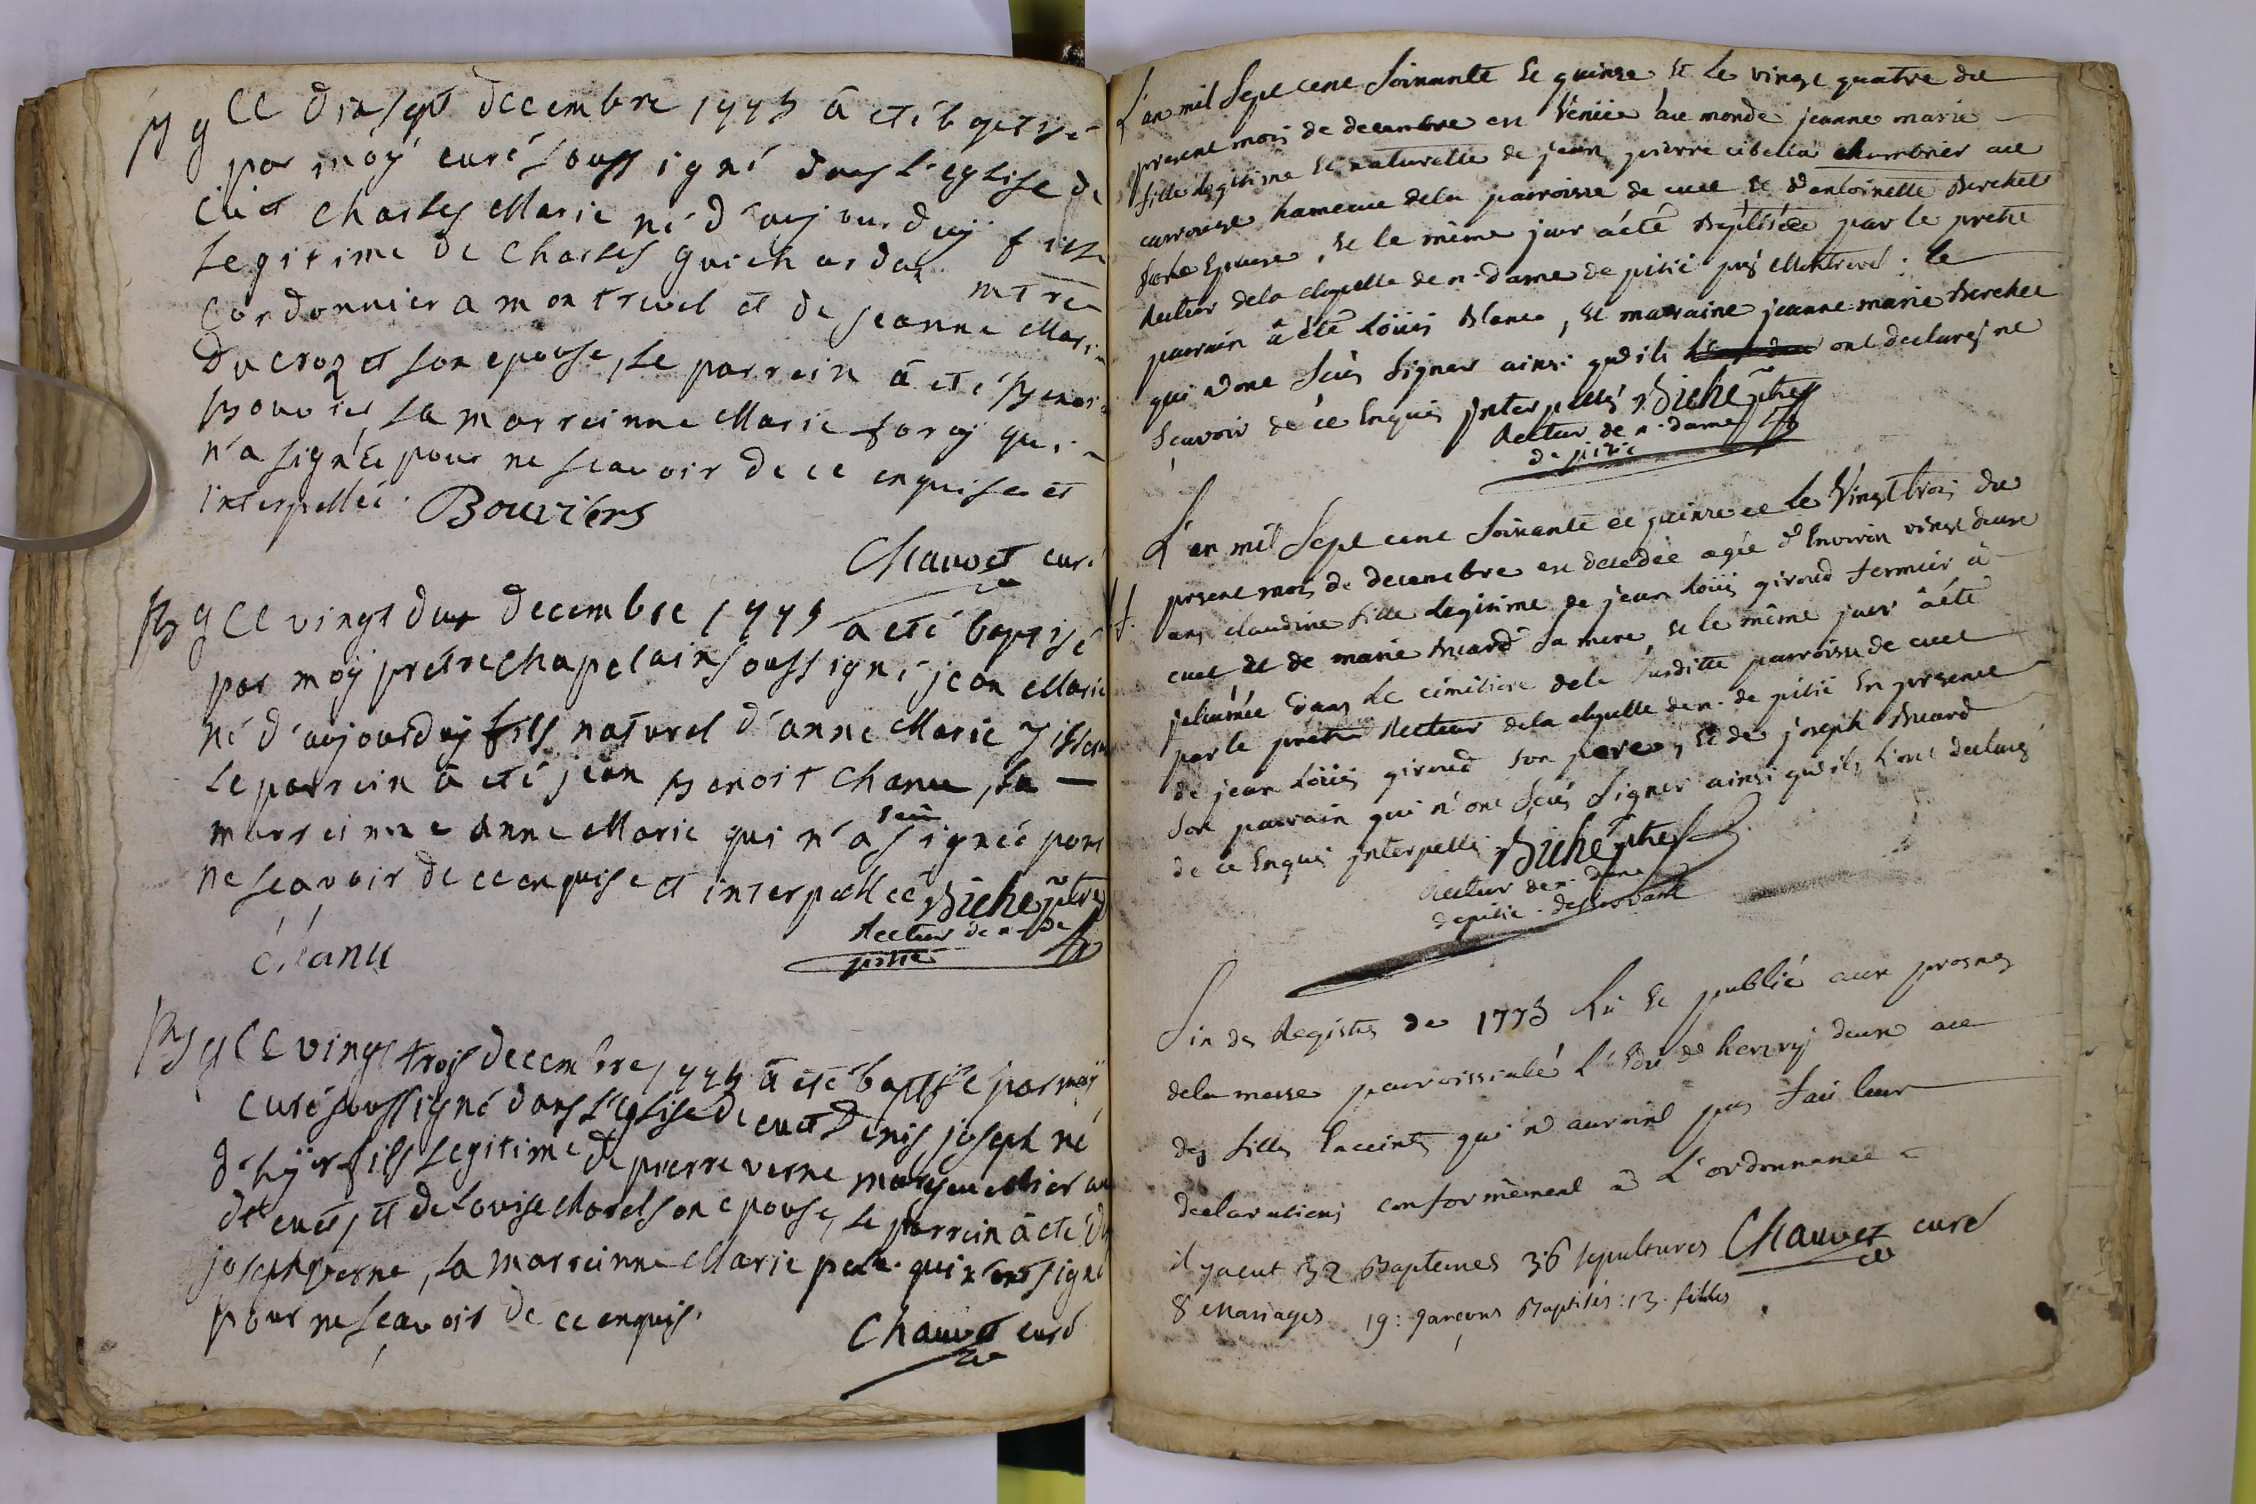 B g Le dix sept decembre 1775 à eté baptisé
par moy curé soussigné dans l'eglise de
Cuet Charles Marie né d'aujourduy fils
Legitime de Charles Guichardaz mtre
Cordonnier a montrevel et de jeanne Marie
Ducroz et son epouse, Le parrein à eté Benoit
Bouvier, La marreinne Marie foray qui
n'a signée pour ne scavoir de ce enquise et
interpellée. Bouviers
Chauvet curé
B g Le vingt deux decembre 1775 à eté baptisé
par moy prêtre chapelain soussigné jean Marie
né d'aujourduy fils naturel d'anne Marie
Le parrein à eté jean Benoit Chanu, La
marreinne anne Marie qui n'a sçeu signée pour
ne scavoir de ce enquise et interpellée Biche ptre
Recteur de n. de
pitié
Chanu
B g Le vingt trois decembre 1775 à eté baptisé par moÿ
curé soussigné dans L'eglise de cuet Denis joseph né
d'hÿer fils Legitime de pierre verne au
dt cuet, et de Louise Morel son epouse, Le parrein à eté
joseph verne, La marreinne Marie qui n'ont signé
pour ne sçavoir de ce enquis.
Chauvet curé
L'an mil Sept cent Soixante Et quinze Et Le vingt quatre du
present mois de decembre est Venüe au monde jeanne marie
fille legitime Et naturelle de jean pierre au
hameau dela parroisse de cuet Et d'antoinette Berchet
Son Epouse, Et le même jour àété Baptisée par le pretre
Recteur dela chapelle de n. dame de pitié près Montrevel: le
parrain à été Loüis Blanc, Et marraine jeanne marie Berchet
qui n'ont Sçeu Signer ainsi qu'ils ont declarés ne
Sçavoir de ce Enquis jnterpellés Biche ptre
Recteur de n. dame
de pitié
L'an mil Sept cent Soixante et quinze et le Vingt trois du
f. present mois de decembre est decedée agée d'Environ vingt deux
ans claudine fille Legitime de jean Loüis giroud fermier à
cuet Et de marie Bucard Sa mere, et le même jour àété
jnhumée dans Le cimitiere dela Susditte parroisse de cuet
par le pretre Recteur dela chapelle de n. de pitié En presence
de jean Loüis giroud Son pere, Et de joseph Bucard
Son parrain qui n'ont Sçeu Signer ainsi qu'ils L'ont declaré
de ce Enquis jnterpellés Biche ptre
Recteur de n. dame
de pitié.
Fin des Registres de 1775 Lü Et publié aux prosnes
dela messe parroissialle L'Edit de henry deux au
des filles Enceintes qui n'auroint pas fait leur
declarations conformèment à L'ordonnance
il yaeut 32 Baptemes 36 sepultures Chauvet curé
8 Mariages 19: garçons Baptisés: 13. filles